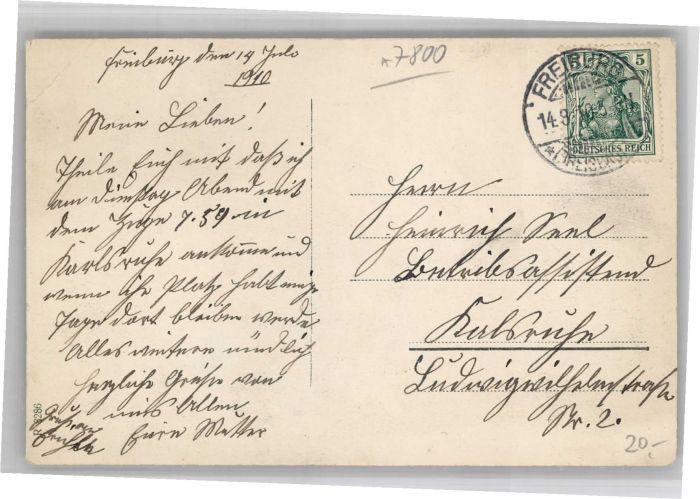 Freiburg den 14 Juli
1910
Meine Lieben!
Theile Euch mit daß ich
am Dienstag Abend mit
dem Zuge 7.59 in
Karlsruhe ankomme und
wenn Ihr Platz habt einige
Tage dort bleiben werde
Alles weitere mündlich
Herzliche Grüße von
uns Allen
Eure Mutter
*7800
FREIBURG
14.9
*(BREISGAU)
5
DEUTSCHES REICH
Herrn
Heinrich Seel
Betribsassistend
Kalsruhe
Ludwigwilhelmstraße
Nr. 2.
20,-